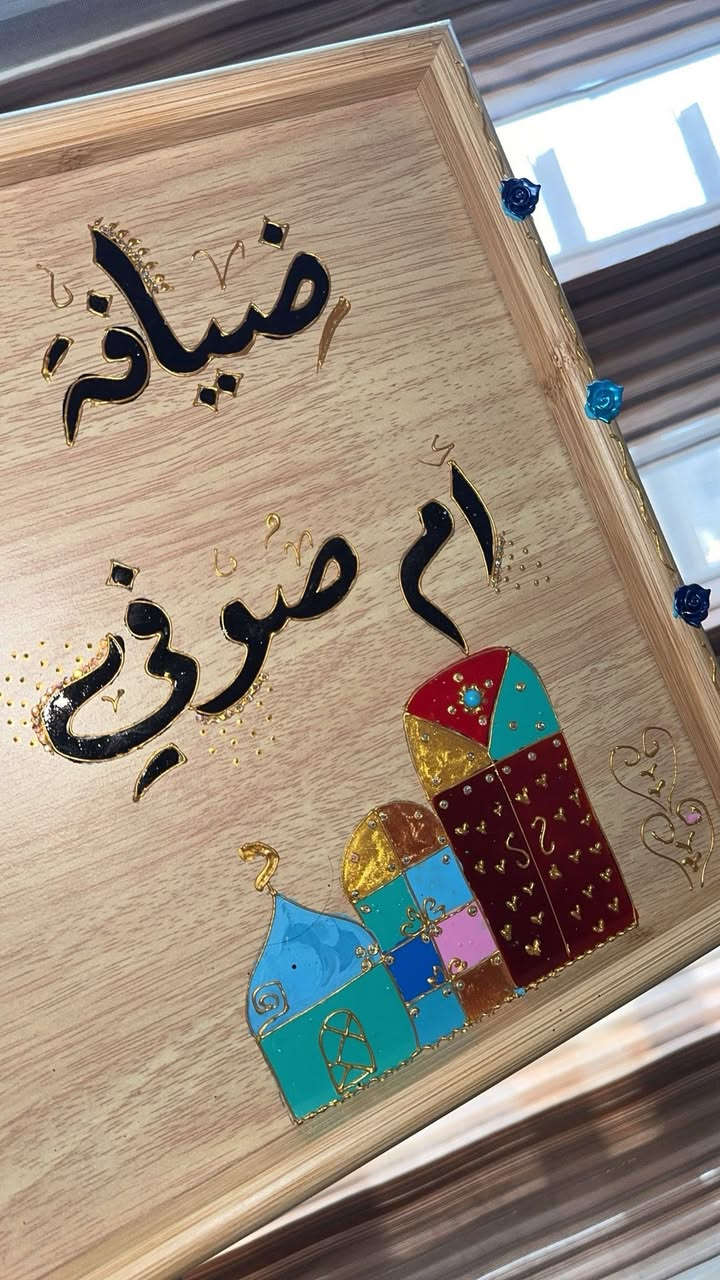 ضيافة
أم صوفي